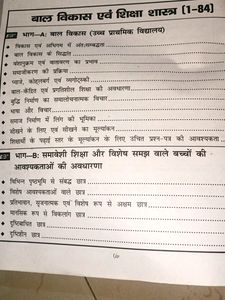 बाल विकास एवं शिक्षा शास्त्र (1-84)
भाग—A: बाल विकास (उच्च प्राथमिक विद्यालय)
विकास एवं अधिगम में अंतःसम्बद्धता
बाल विकास के सिद्धांत
वंशानुक्रम एवं वातावरण का प्रभाव
समाजीकरण की प्रक्रिया
प्याजे, कोहलबर्ग एवं व्यगोट्स्की
बाल-केंद्रित एवं प्रगतिशील शिक्षा की अवधारणा
बुद्धि निर्माण का समालोचनात्मक विचार
भाषा और विचार
समाज निर्माण में लिंग की भूमिका
सीखने के लिए एवं सीखने का मूल्यांकन
शिक्षार्थी के पढ़ाई स्तर के मूल्यांकन के लिए उचित प्रश्न-पत्र की आवश्यकता
भाग—B: समावेशी शिक्षा और विशेष समझ वाले बच्चों की
आवश्यकताओं की अवधारणा
विभिन्न पृष्ठभूमि से संबद्ध छात्र
विशेष आवश्यकताओं वाले छात्र
प्रतिभावान, सृजनात्मक एवं विशेष रूप से अक्षम छात्र
मानसिक रूप से विकलांग छात्र
दृष्टिबाधित छात्र
दृष्टिहीन छात्र